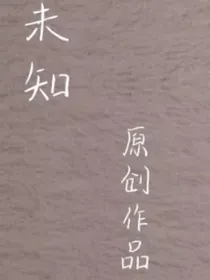 未知
原创作品